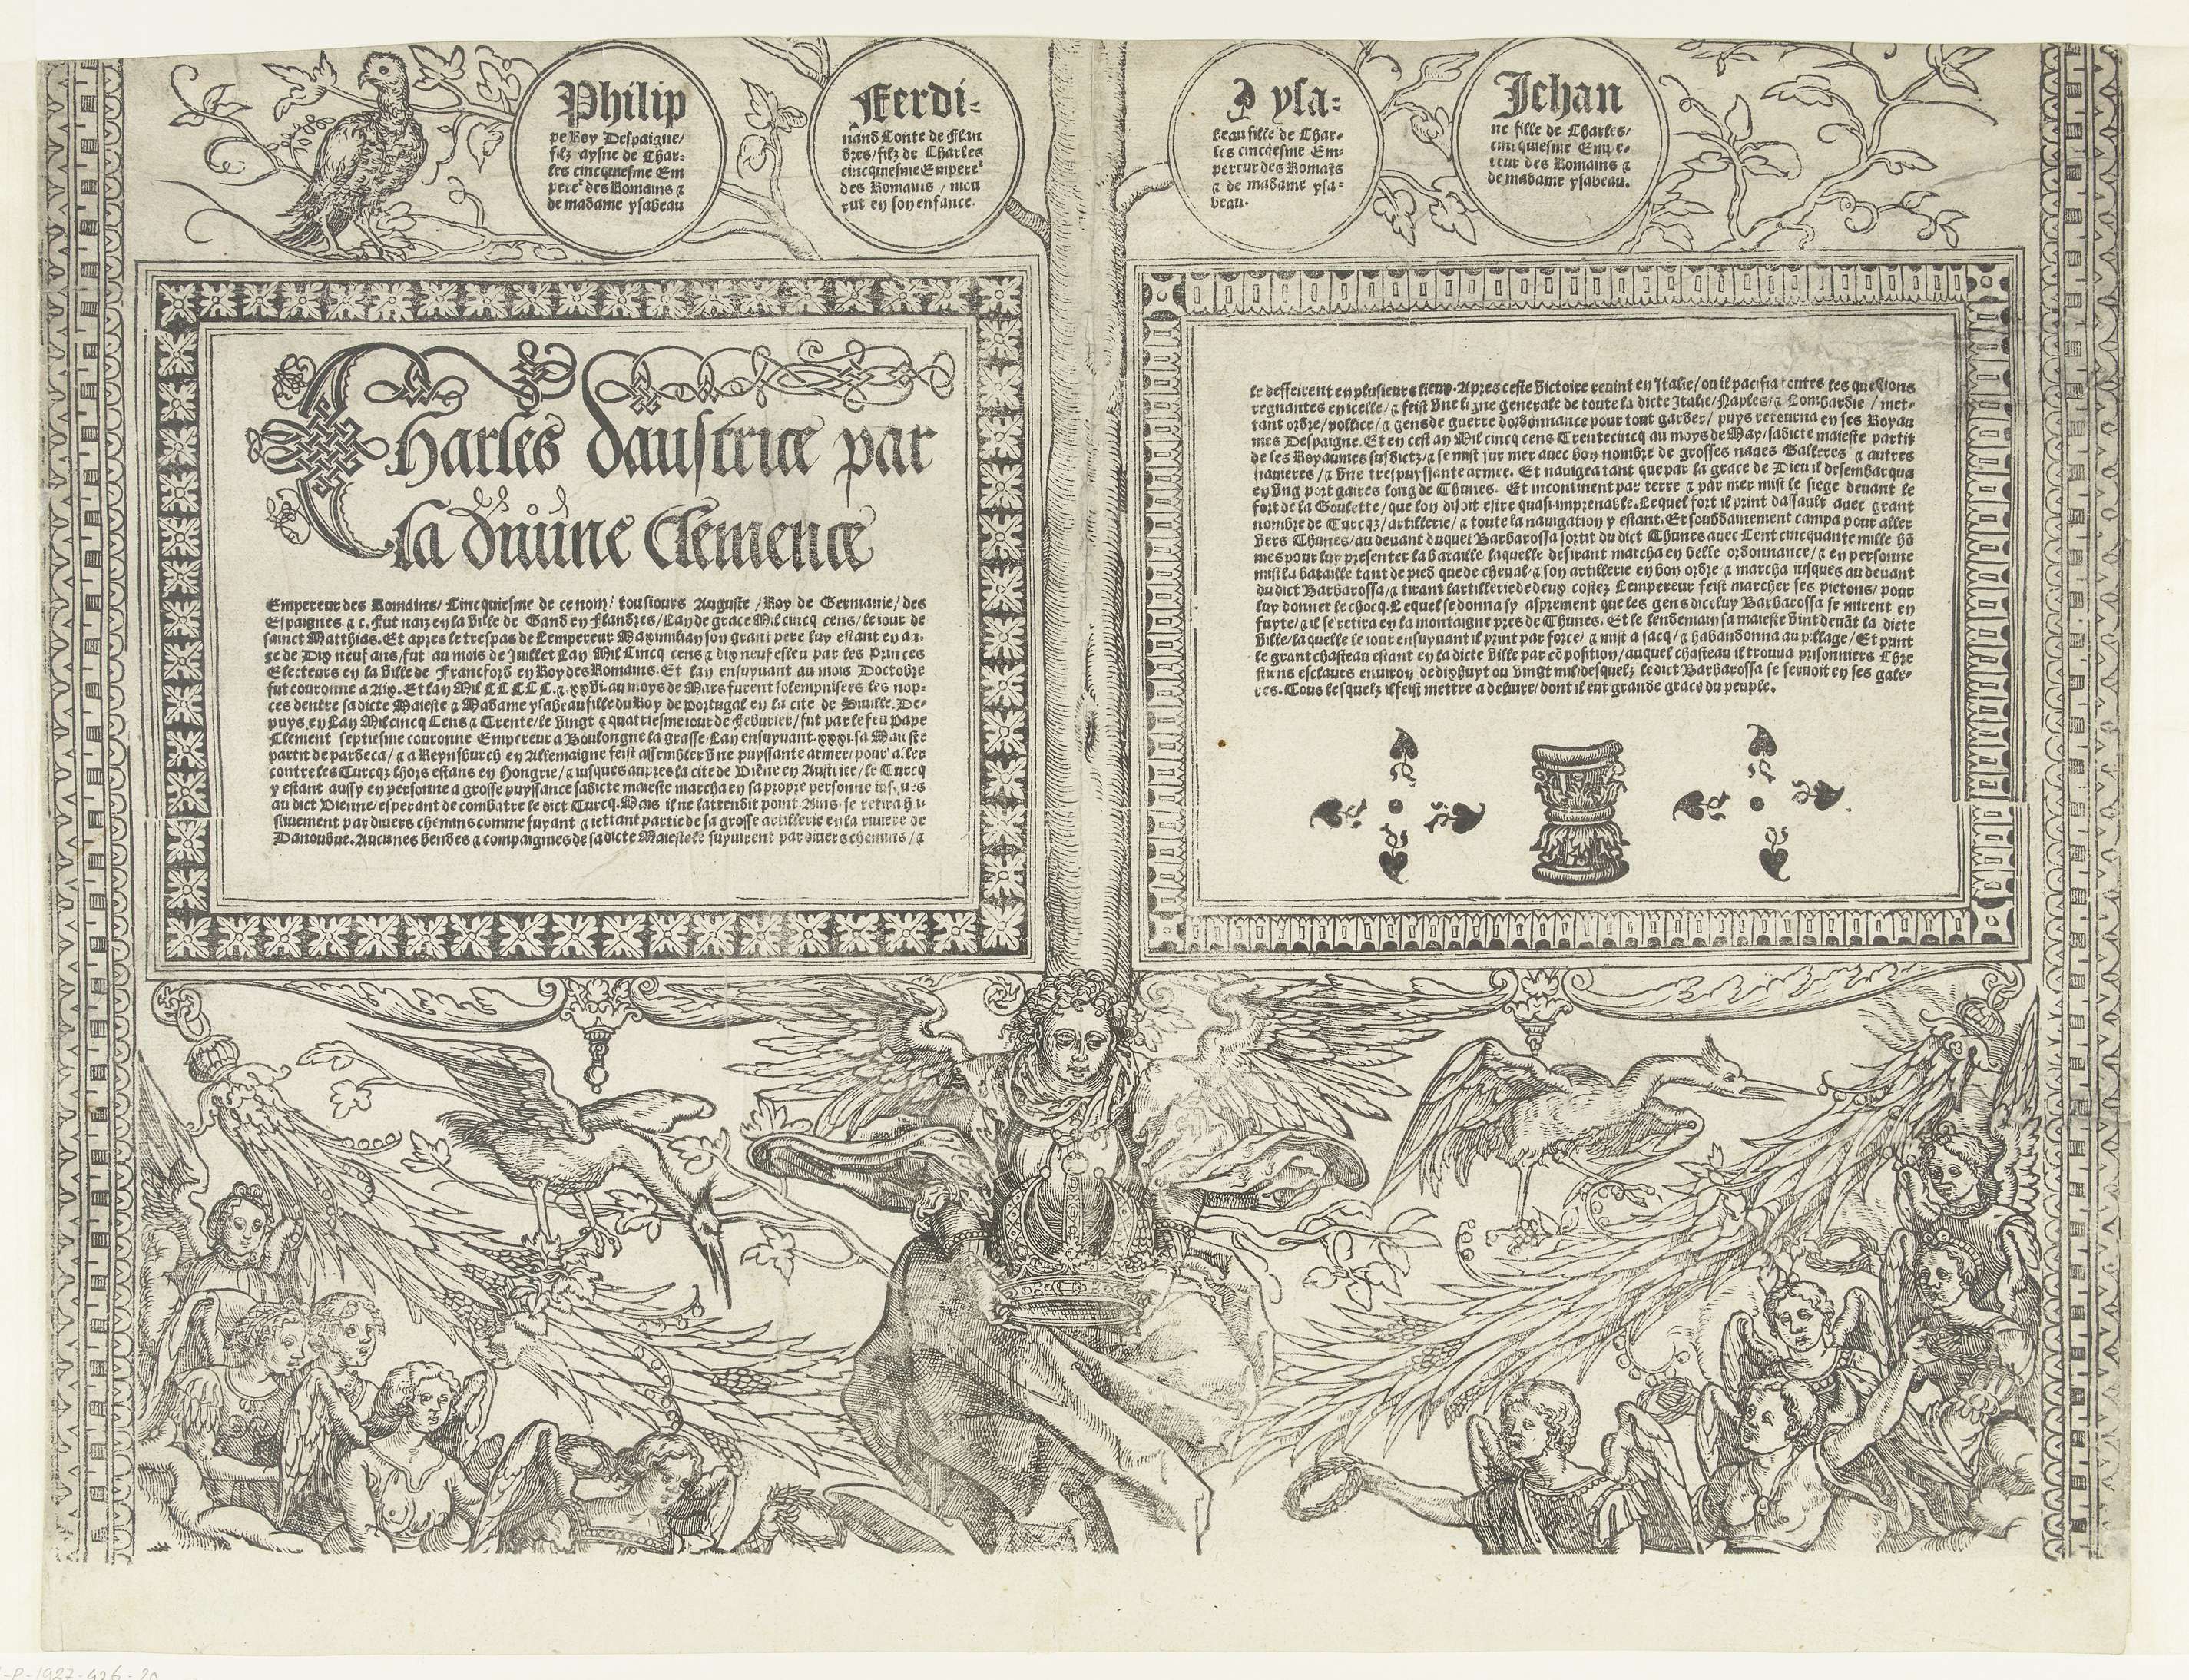 Philip
pe Roy Despaigne/
filz aysne de Char-
les cincquiesme Em
pere² des Romains &
de madame ysabeau
Ferdi-
nand Conte de Flan
dres/filz de Charles
cincquiesme Empere²
des Romains / mou
rut en son enfance.
ysa-
beau fille de Char-
les cincqiesme Em-
pereur des Romais
& de madame ysa-
beau.
Jehan
ne fille de Charles/
cincquiesme Empe-
reur des Romains &
de madame ysabeau.
Charles daustrice par
la diuine Clemence
Empereur des Romains/ Cincquiesme de ce nom/ tousiours Auguste / Roy de Germanie/ des
Espaignes &c. Fut naiz en la ville de Gand en Flandres/ Lan de grace Mil cincq cens/ le iour de
sainct Matthias. Et apres le trespas de Lempereur Maximilian son grant pere luy estant en aa-
ge de Dix neuf ans/ fut au mois de Juillet Lan Mil Cincq cens & dix neuf esleu par les Princes
Electeurs en la ville de Francford en Roy des Romains. Et lan ensuyuant au mois Doctobre
fut couronne a Aix. Et lan Mil CCCCC. & xxvi. au moys de Mars furent solempnisees les nop-
ces dentre sa dicte Maieste & Madame ysabeau fille du Roy de Portugal en la cite de Siuille. De-
puys, en Lan Mil cincq Cens & Trente/ le vingt & quatriesme iour de Feburier/ fut par le feu Pape
Clement septiesme couronne Empereur a Boulongne la grasse. Lan ensuyuant .xxxi. sa Maieste
partit de pardeca/ & a Reynsburch en Allemaigne feist assembler vne puyssante armee/ pour aller
contre les Turcqz lhors estans en Hongrie/ & iusques aupres la cite de Viēne en Austrice/ le Turcq
y estant aussy en personne a grosse puyssance sadicte maieste marcha en sa propre personne iusques
au dict Vienne/ esperant de combatre le dict Turcq. Mais il ne lattendit point. Ains se retira h
stiuement par diuers chemins comme fuyant & iettant partie de sa grosse artillerie en la riuiere de
Danoubue. Aucunes bendes & compaignies de sa dicte Maieste le suyuirent par diuers chemins/ &
le deffeirent en plusieurs lieux. Apres ceste victoire reuint en Italie/ ou il pacifia toutes les questions
regnantes en icelle/ & feist vne ligne generale de toute la dicte Italie/ Naples/ & Lombardie / met-
tant ordre/ pollice/ & gens de guerre dordonnance pour tout garder/ puys retourna en ses Royau
mes Despaigne. Et en cest an Mil cincq cens Trentecincq au moys de May/ sadicte maieste partit
de ses Royaumes susdictz/ & se mist sur mer auec bon nombre de grosses naues Galleres & autres
nauieres / & vne trespuyssante armee. Et nauigea tant que par la grace de Dieu il desembarqua
en vng port gaires long de Thunes. Et incontinent par terre & par mer mist le siege deuant le
fort de la Goulette/ que lon disoit estre quasi imprenable. Lequel fort il print dassault auec grant
nombre de Turcqz/ artillerie/ & toute la nauigation y estant. Et souddainement campa pour aller
vers Thunes/ au deuant duquel Barbarossa sortit du dict Thunes auec Cent cincquante mille hō
mes pour luy presenter la bataille laquelle desirant marcha en belle ordonnance/ & en personne
mist la bataille tant de pied que de cheual & son artillerie en bon ordre & marcha iusques au deuant
du dict Barbarossa/ & tirant lartillerie de deux costez Lempereur feist marcher ses pietons/ pour
luy donner le chocq. Lequel se donna sy asprement que les gens diceluy Barbarossa se mirent en
fuyte/ & il se retira en la montaigne pres de Thunes. Et le lendemain sa maieste vint deuāt la dicte
ville/ la quelle le iour ensuyuant il print par force/ & mist a sacq/ & habandonna au pillage/ Et print
le grant chasteau estant en la dicte ville par cōposition/ auquel chasteau il trouua prisonniers Chre
stiens esclaues enuiron de dixhuyt ou vingt mil/ desquelz le dict Barbarossa se seruoit en ses gale-
res. Tous lesquelz il feist mettre a deliure/ dont il eut grande grace du peuple.
-P-1927-426-20